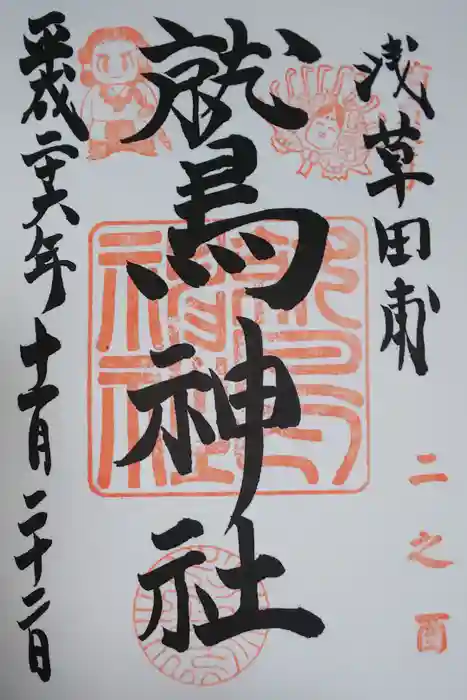 浅草田甫
二之酉
鷲神社
平成二十六年十一月二十二日